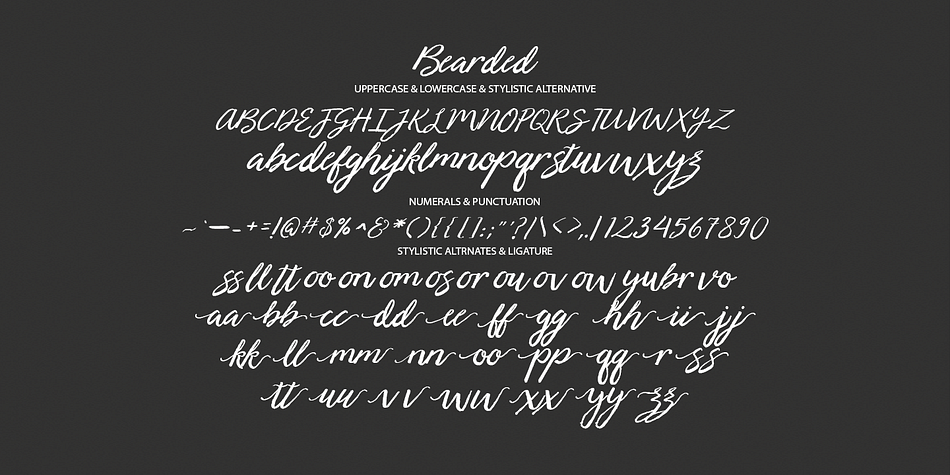 Bearded
UPPERCASE & LOWERCASE & STYLISTIC ALTERNATIVE
ABCDEFGHIJKLMNOPQRSTUVWXYZ
abcdefghijklmnopqrstuvwxyz
NUMERALS & PUNCTUATION
~`—-+=!@#$%^&*(){}[]:;"'?/|\<>,.|1234567890
STYLISTIC ALTRNATES & LIGATURE
ss ll tt oo on om os or ou ov ow yu br vo
aa bb cc dd ee ff gg hh ii jj
kk ll mm nn oo pp qq r ss
tt uu vv ww xx yy zz